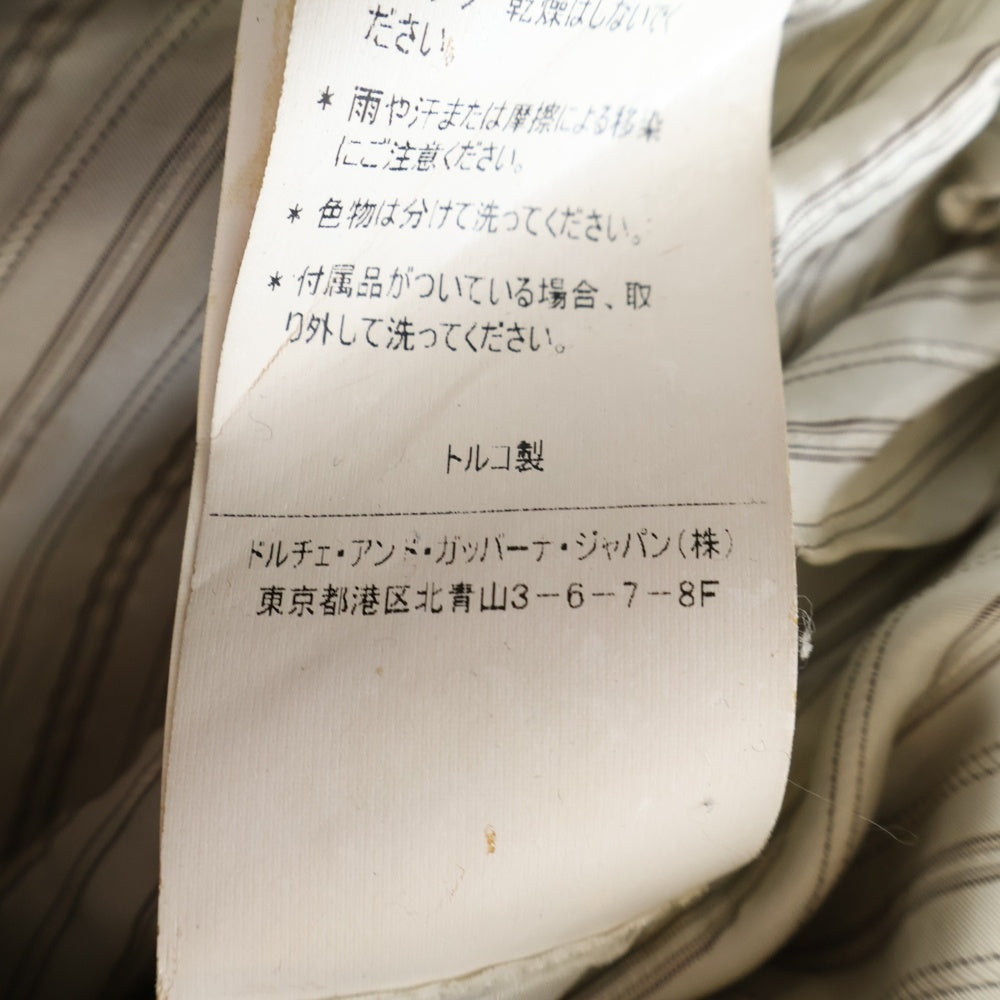 乾燥はしないでく
ださい。
* 雨や汗または摩擦による移染
にご注意ください。
* 色物は分けて洗ってください。
* 付属品がついている場合、取
り外して洗ってください。
トルコ製
ドルチェ・アンド・ガッバーナ・ジャパン(株)
東京都港区北青山3-6-7-8F